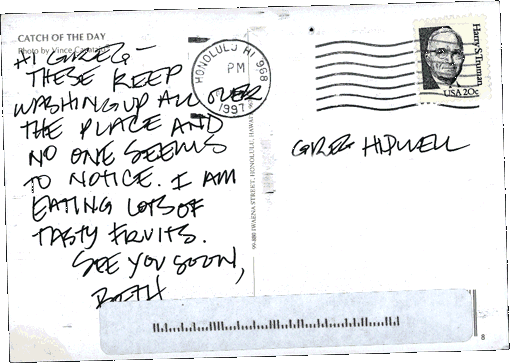 CATCH OF THE DAY
Photo by Vince
HI GREG,—
THESE KEEP
WASHING UP ALL OVER
THE PLACE AND
NO ONE SEEMS
TO NOTICE. I AM
EATING LOTS OF
TASTY FRUITS.
SEE YOU SOON,
BETH
HONOLULU HI 968
PM
1997
Harry S. Truman
USA 20c
GREG HIDWELL
STREET, HONOLULU, HAWAII
8